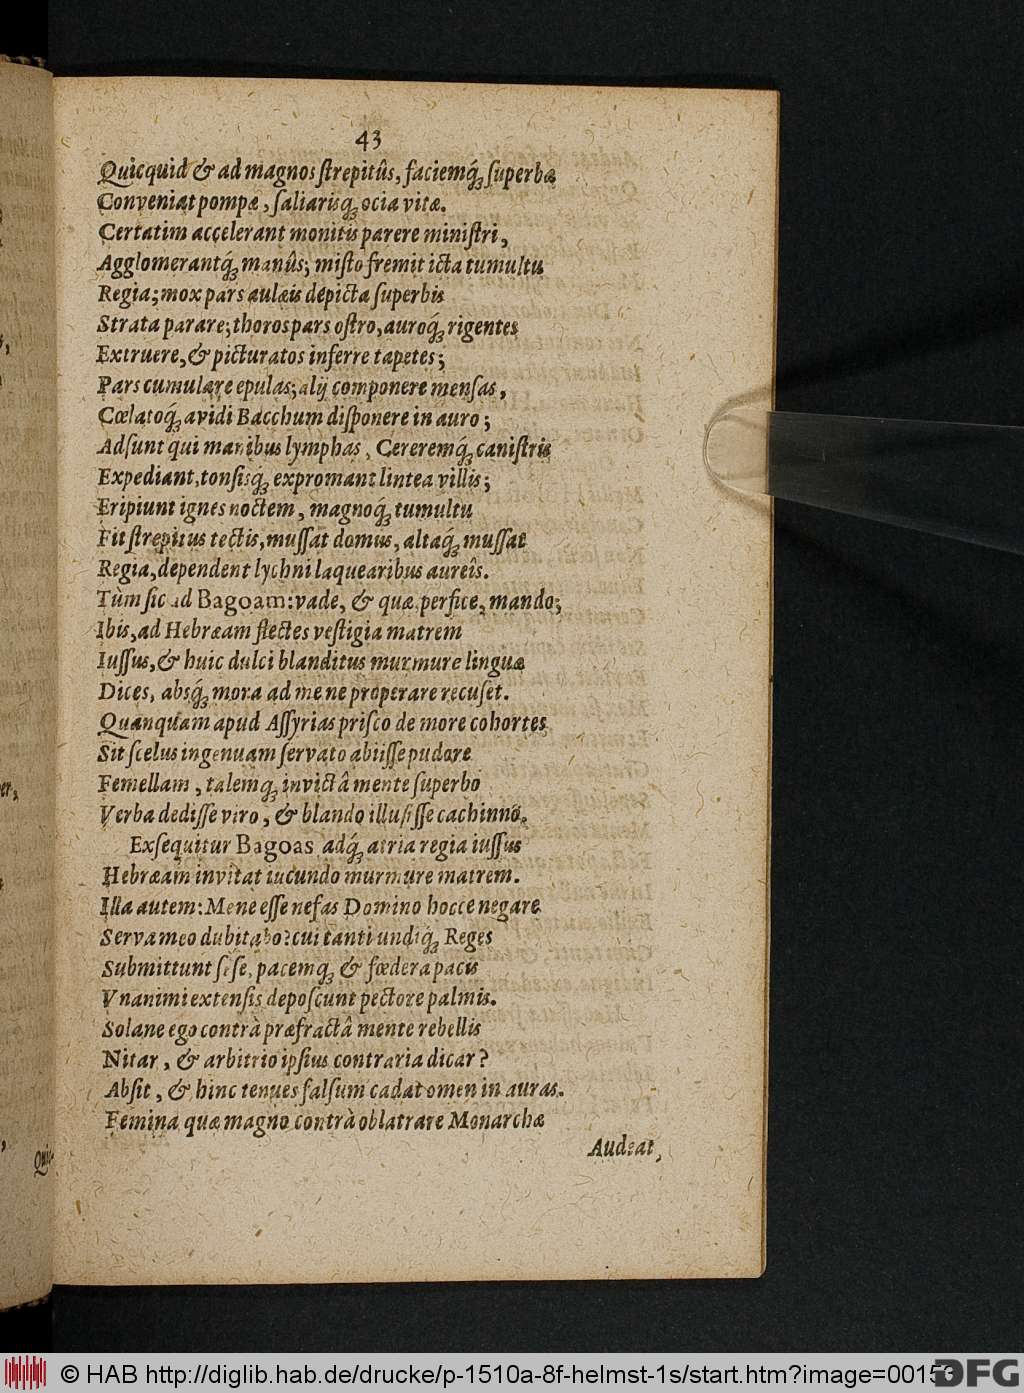 43
Quicquid & ad magnos ſtrepitûs, faciemq́; ſuperbæ
Conveniat pompæ, ſaliarisq́; ocia vitæ.
Certatim accelerant monitis parere miniſtri,
Agglomerantq́; manûs; miſto fremit icta tumultu
Regia; mox pars aulæis depicta ſuperbis
Strata parare; thoros pars oſtro, auroq́; rigentes
Extruere, & picturatos inferre tapetes;
Pars cumulare epulas; alij componere menſas,
Cœlatoq́; avidi Bacchum diſponere in auro;
Adſunt qui manibus lymphas, Cereremq́; caniſtris
Expediant, tonſisq́; expromant lintea villis;
Eripiunt ignes noctem, magnoq́; tumultu
Fit ſtrepitus tectis, muſſat domus, altaq́; muſſat
Regia, dependent lychni laquearibus aureîs.
Tùm ſic ad Bagoam: vade, & quæ perfice, mando;
Ibis, ad Hebræam flectes veſtigia matrem
Iuſſus, & huic dulci blanditus murmure linguæ
Dices, absq́; mora ad me ne properare recuſet.
Quanquam apud Aſſyrias priſco de more cohortes
Sit ſcelus ingenuam ſervato abiiſſe pudore
Femellam, talemq́; invictâ mente ſuperbo
Verba dediſſe viro, & blando illuſiſſe cachinno.
Exſequitur Bagoas adq́; atria regia iuſſus
Hebræam invitat iucundo murmure matrem.
Illa autem: Mene eſſe nefas Domino hocce negare
Serva meo dubitabo? cui tanti undiq́; Reges
Submittunt ſeſe, pacemq́; & fœdera pacis
Vnanimi extenſis depoſcunt pectore palmis.
Solane ego contrà præfractâ mente rebellis
Nitar, & arbitrio ipſius contraria dicar?
Abſit, & hinc tenues falſum cadat omen in auras.
Femina quæ magno contrà oblatrare Monarchæ
Audeat,
© HAB http://diglib.hab.de/drucke/p-1510a-8f-helmst-1s/start.htm?image=00153
DFG